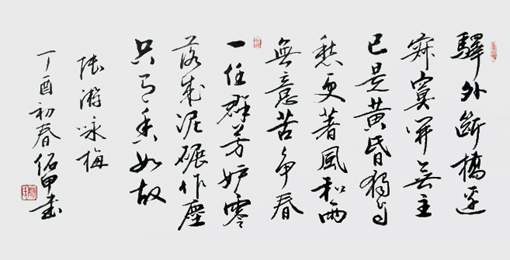 驛外斷橋邊
寂寞開无主
已是黃昏獨自
愁更著風和雨
無意苦争春
一任群芳妒零
落成泥碾作塵
只有香如故
陸游詠梅
丁酉初春甲書